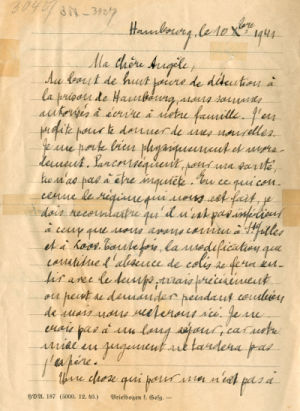 Hambourg, le 10 Xbre 1941
Ma Chère Angèle,
Au bout de huit jours de détention à
la prison de Hambourg, nous sommes
autorisés à écrire à notre famille. J'en
profite pour te donner de mes nouvelles.
Je me porte bien physiquement et mora-
lement. Par conséquent, pour ma santé,
tu n'as pas à être inquiète. En ce qui con-
cerne le régime qui nous est fait, je
dois reconnaître qu'il n'est pas inférieur
à ceux que nous avons connus à St Gilles
et à Loos. Toutefois, la modification que
constitue l'absence de colis se fera sen-
tir avec le temps, mais précisément
on peut se demander pendant combien
de mois nous resterons ici. Je ne
crois pas à un long séjour, car notre
mise en jugement ne tardera pas
j'espère.
Une chose qui pour moi n'est pas à
HDA. 187 (5000. 12. 40.) — Briefbogen f. Gefg. —